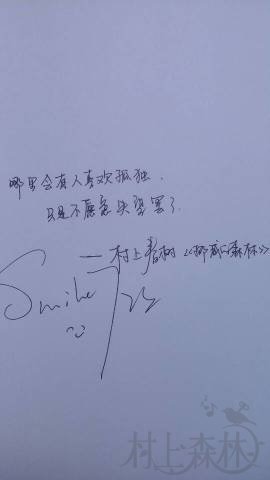 哪里会有人喜欢孤独，
只是不愿意失望罢了.
—村上春树《挪威的森林》
Smile
村上森林